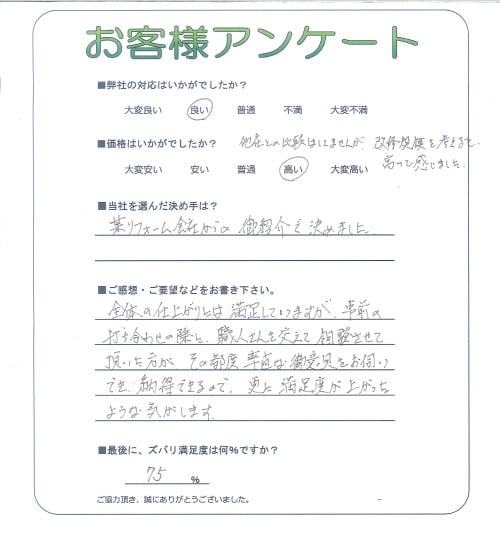 お客様アンケート
■弊社の対応はいかがでしたか?
大変良い 良い 普通 不満 大変不満
■価格はいかがでしたか? 他社との比較はしてませんが、改修規模を考えると
大変安い 安い 普通 高い 大変高い 高いと感じました。
■当社を選んだ決め手は?
某リフォーム会社からの御紹介で決めました。
■ご感想・ご要望などをお書き下さい。
全体の仕上がりには満足していますが、事前の
打ち合わせの際に、職人さんを交えて相談させて
頂いた方が、その都度率直な御意見をお伺い
でき、納得できるので、更に満足度が上がった
ような気がします。
■最後に、ズバリ満足度は何%ですか?
75 %
ご協力頂き、誠にありがとうございました。